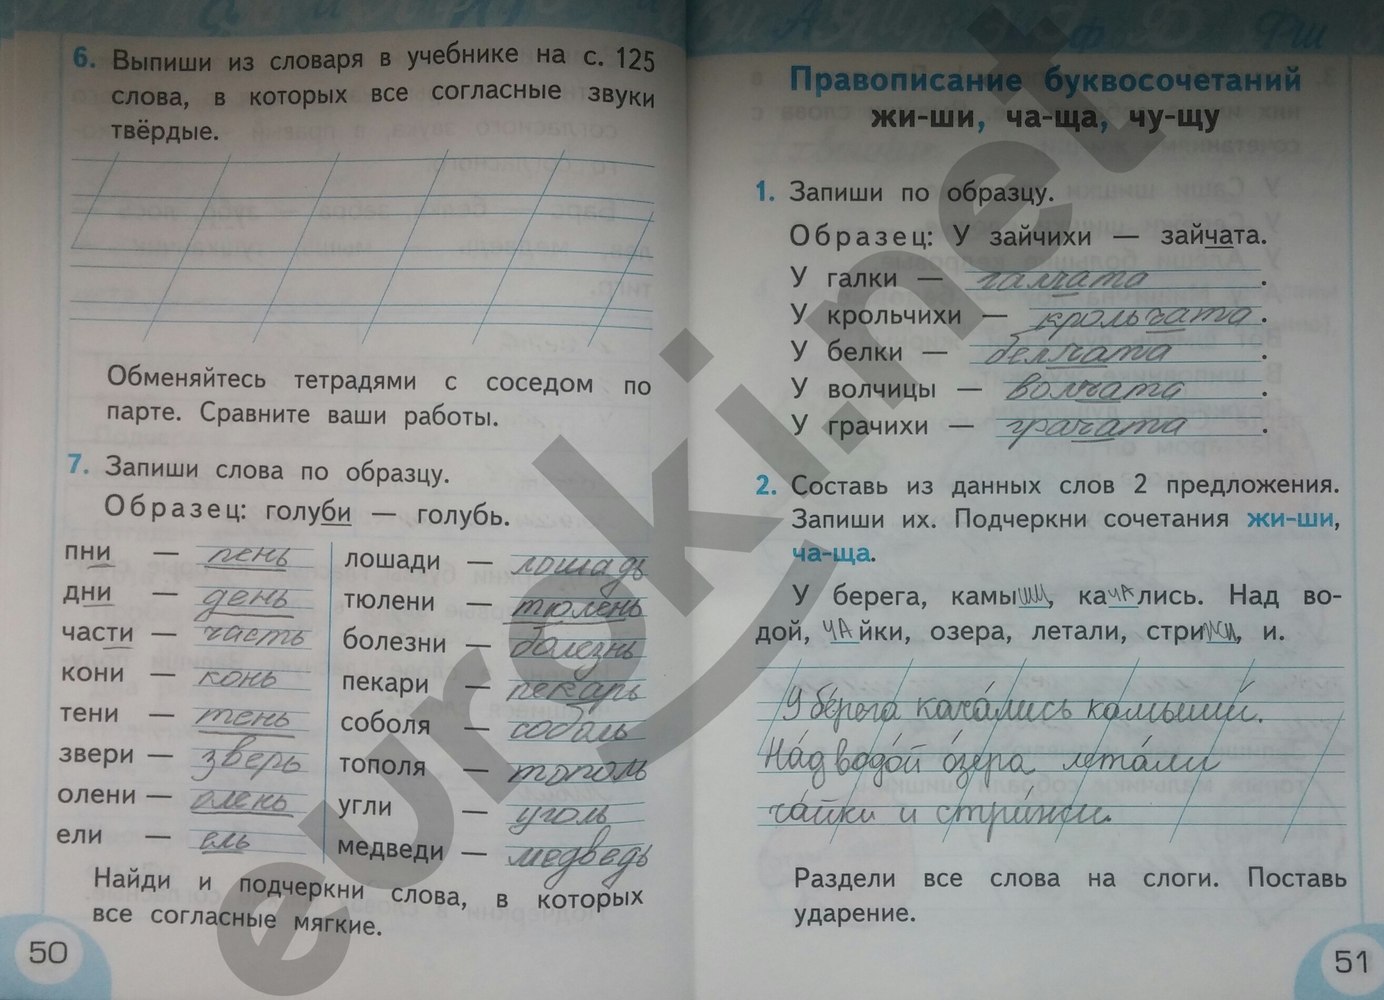 6. Выпиши из словаря в учебнике на с. 125
слова, в которых все согласные звуки
твёрдые.
Обменяйтесь тетрадями с соседом по
парте. Сравните ваши работы.
7. Запиши слова по образцу.
Образец: голуби — голубь.
пни — пень
дни — день
части — часть
кони — конь
тени — тень
звери — зверь
олени — олень
ели — ель
лошади — лошадь
тюлени — тюлень
болезни — болезнь
пекари — пекарь
соболя — соболь
тополя — тополь
угли — уголь
медведи — медведь
Найди и подчеркни слова, в которых
все согласные мягкие.
50
Правописание буквосочетаний
жи-ши, ча-ща, чу-щу
1. Запиши по образцу.
Образец: У зайчихи — зайчата.
У галки — галчата.
У крольчихи — крольчата.
У белки — белчата.
У волчицы — волчата.
У грачихи — грачата.
2. Составь из данных слов 2 предложения.
Запиши их. Подчеркни сочетания жи-ши,
ча-ща.
У берега, камыши, качались. Над во-
дой, чайки, озера, летали, стрижи, и.
У бе́рега кача́лись камыши́.
На́д водо́й о́зера лета́ли
ча́йки и стри́жи.
Раздели все слова на слоги. Поставь
ударение.
51
euroki.net